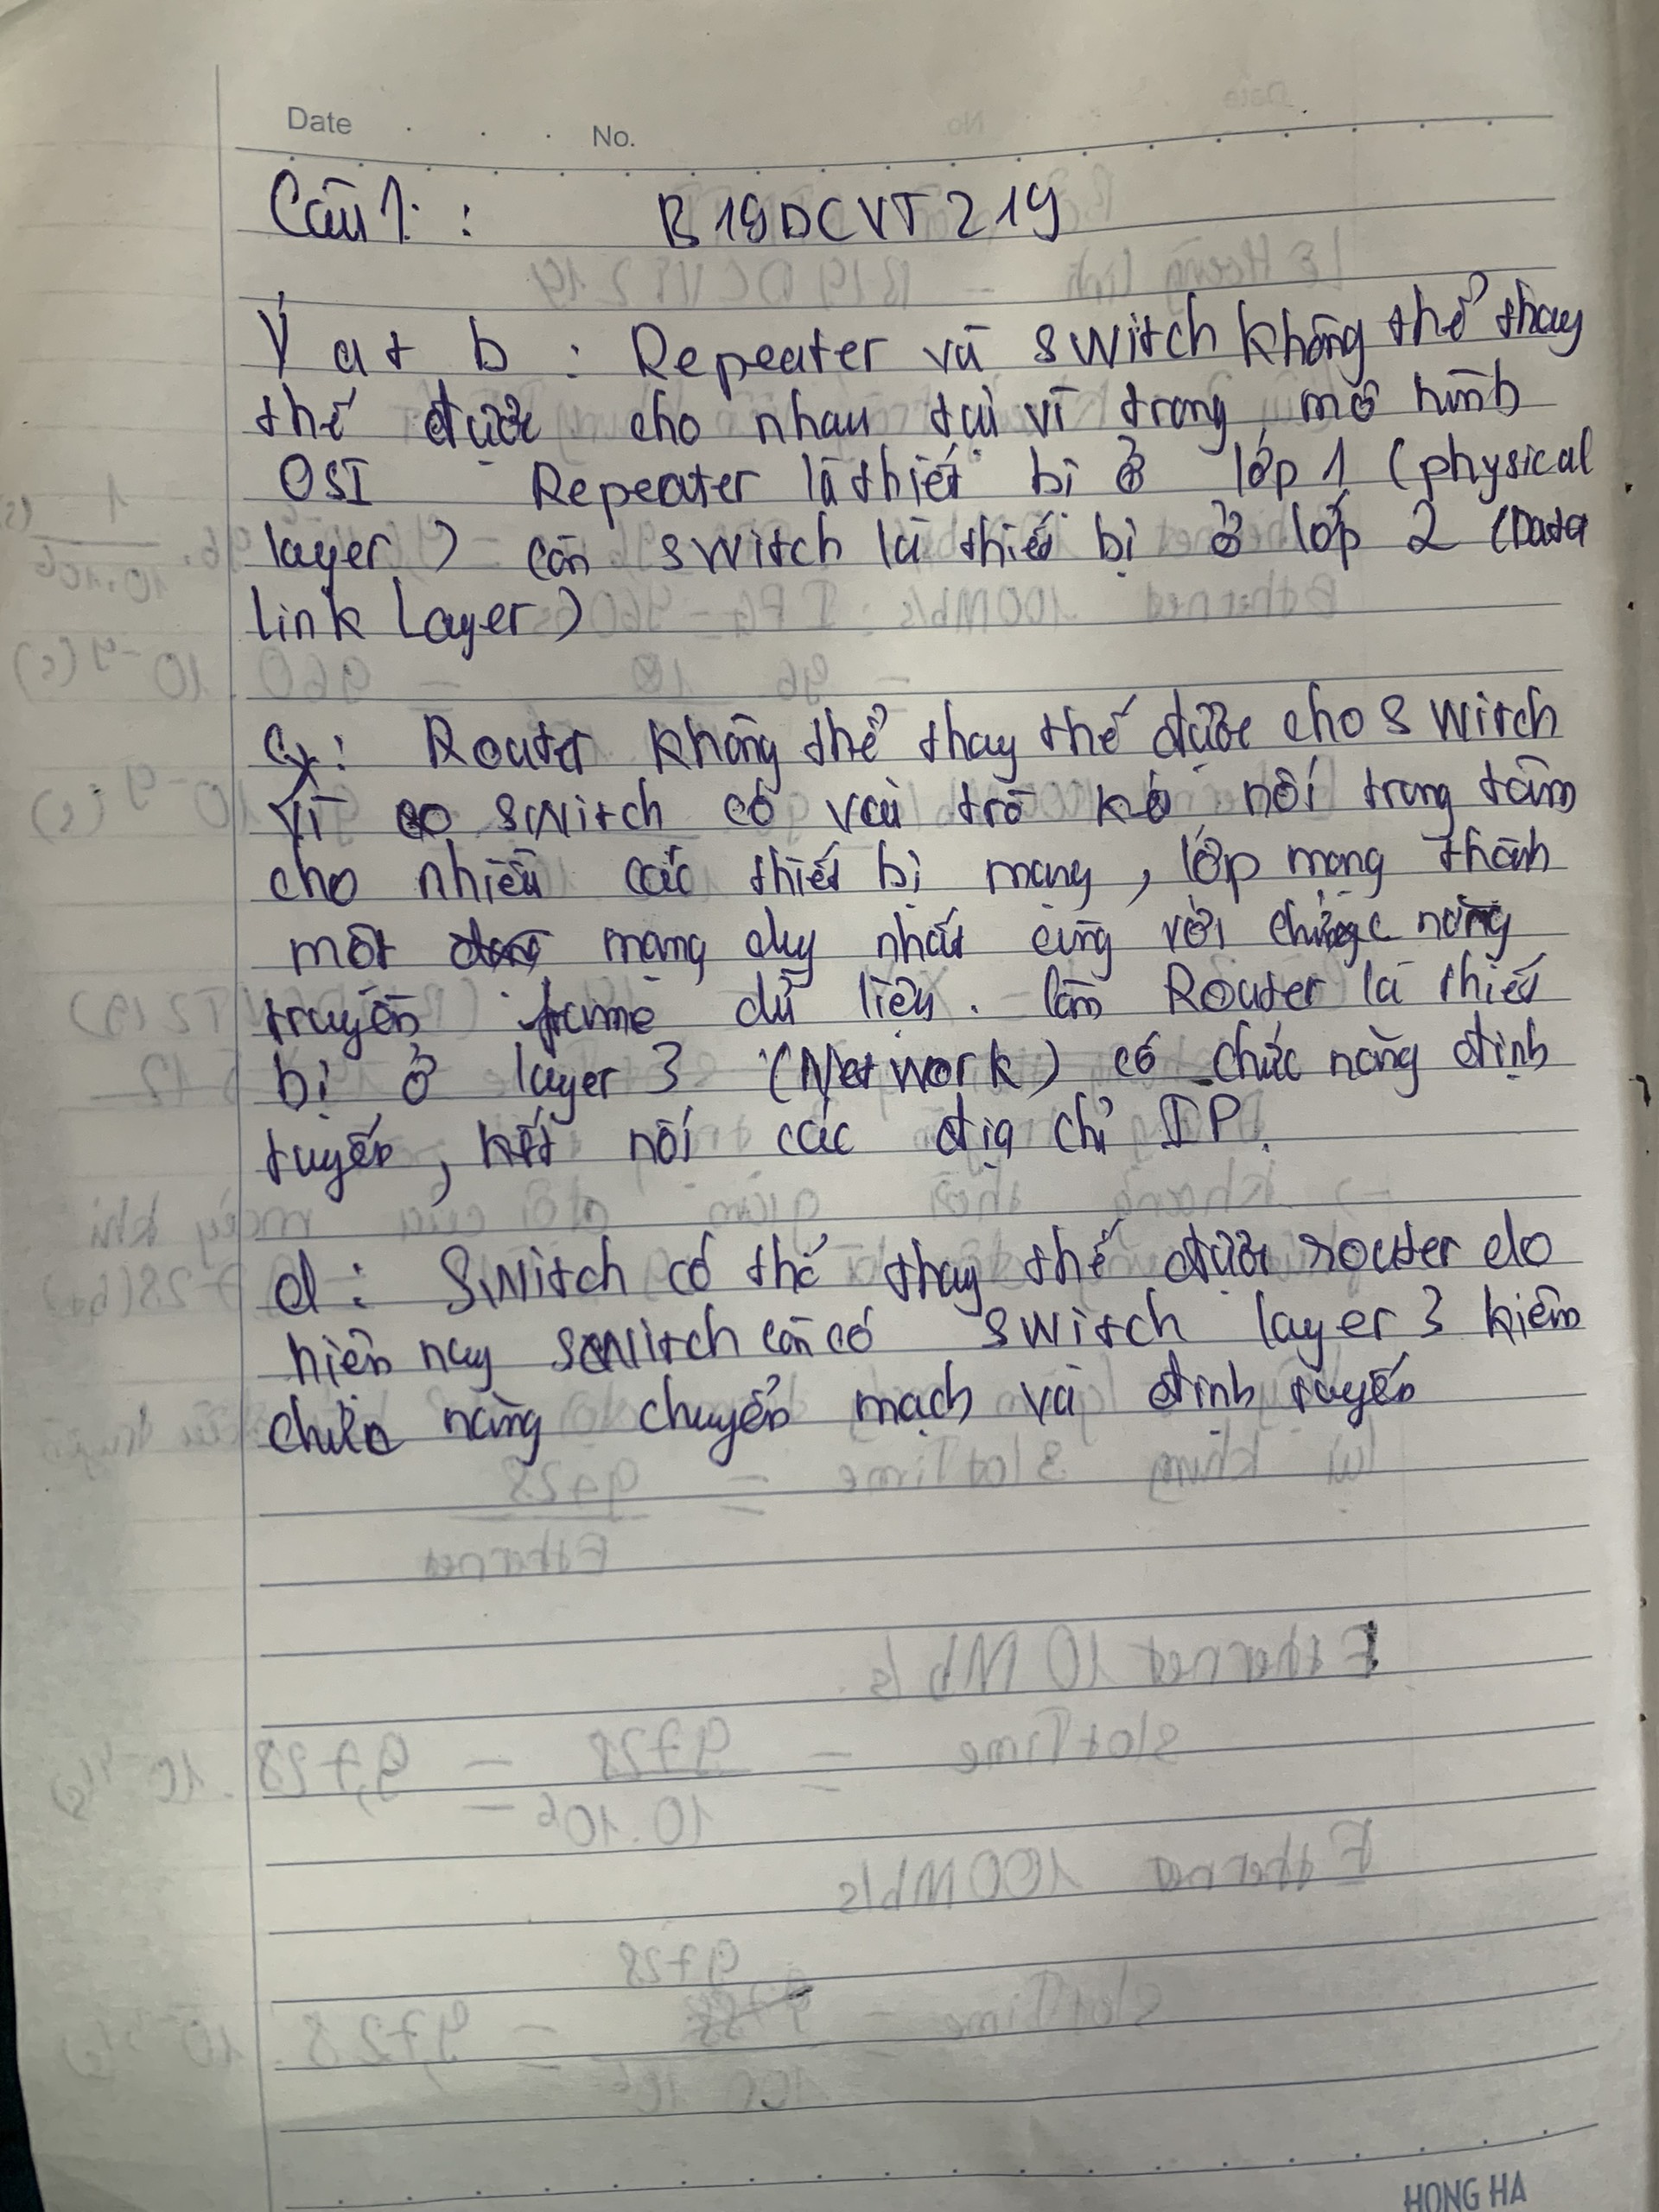 Date . . . No.
Câu 1: : B19DCVT219
Ý a + b : Repeater và switch không thể thay
thế được cho nhau tại vì trong mô hình
OSI Repeater là thiết bị ở lớp 1 (physical
layer) còn switch là thiết bị ở lớp 2 (Data
link Layer)
c: Router không thể thay thế được cho switch
Vì switch có vai trò kết nối trung tâm
cho nhiều các thiết bị mạng, lớp mạng thành
một mạng duy nhất cùng với chức năng
truyền frame dữ liệu. Còn Router là thiết
bị ở layer 3 (Network) có chức năng định
tuyến, kết nối các địa chỉ IP.
d: Switch có thể thay thế được router do
hiện nay switch còn có switch layer 3 kiêm
chức năng chuyển mạch và định tuyến
HONG HA